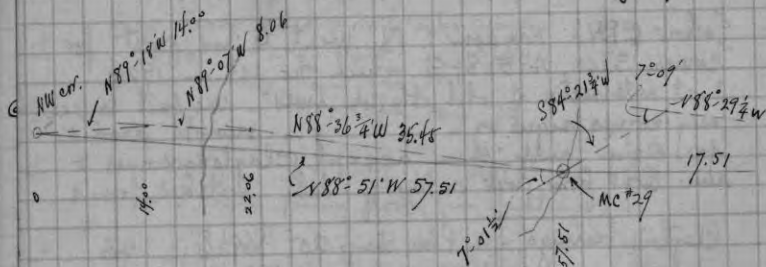 NW cor.
N89°-18'W 14.00
N89°-07'W 8.06
N88°-36¾'W 35.45
N88°-51'W 57.51
S84°-21¾'W
7°-09'
N88°-29¼'W
17.51
MC #29
7°-01½'
0
14.00
22.06
57.51